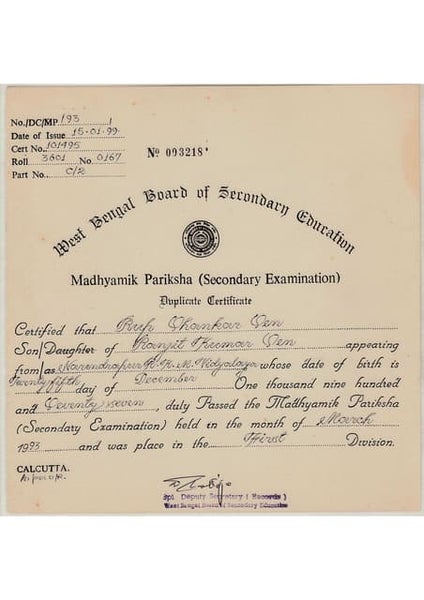 No./DC/MP 193 /
Date of Issue 15-01-99
Cert No. 101495
Roll 3601 No. 0167
Part No. C/2
No 093218
West Bengal Board of Secondary Education
Madhyamik Pariksha (Secondary Examination)
Duplicate Certificate
Certified that Rup Shankar Sen
Son/Daughter of Ranjit Kumar Sen appearing
from/as Narendrapur R. K. M. Vidyalaya whose date of birth is
Twenty fifth day of December One thousand nine hundred
and Seventy seven, duly Passed the Madhyamik Pariksha
(Secondary Examination) held in the month of March
1993 and was place in the First Division.
CALCUTTA.
Deputy Secretary ( Records )
West Bengal Board of Secondary Education